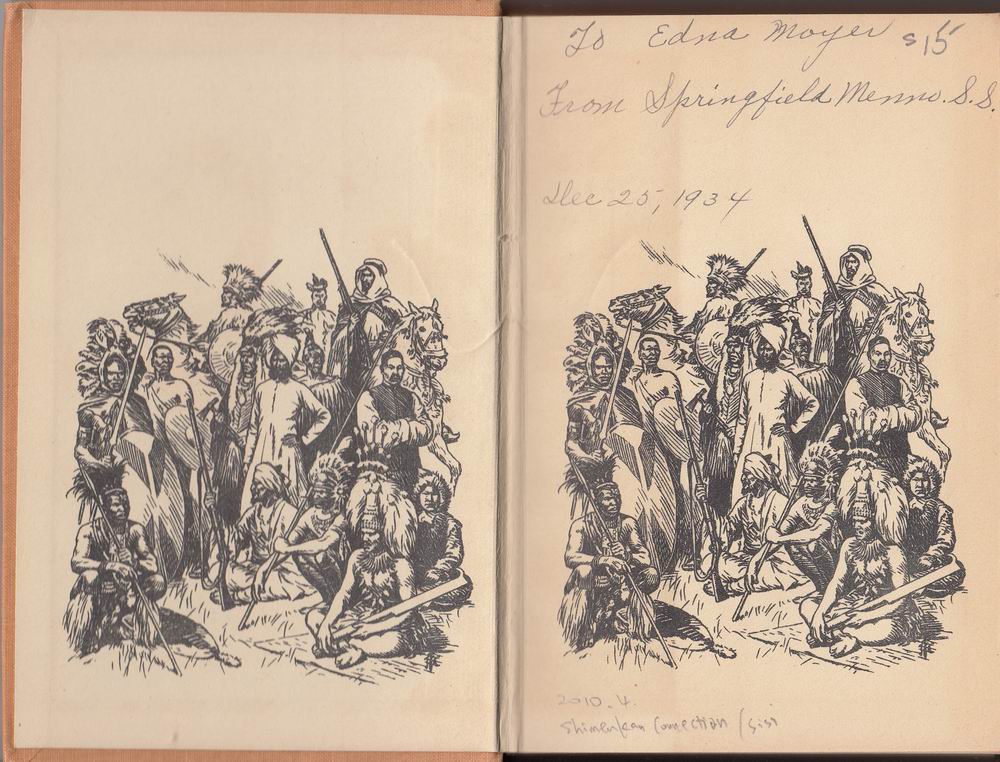 To Edna Moyer $15
From Springfield Menno. S.S.
Dec 25, 1934
2010.4.
Connection /